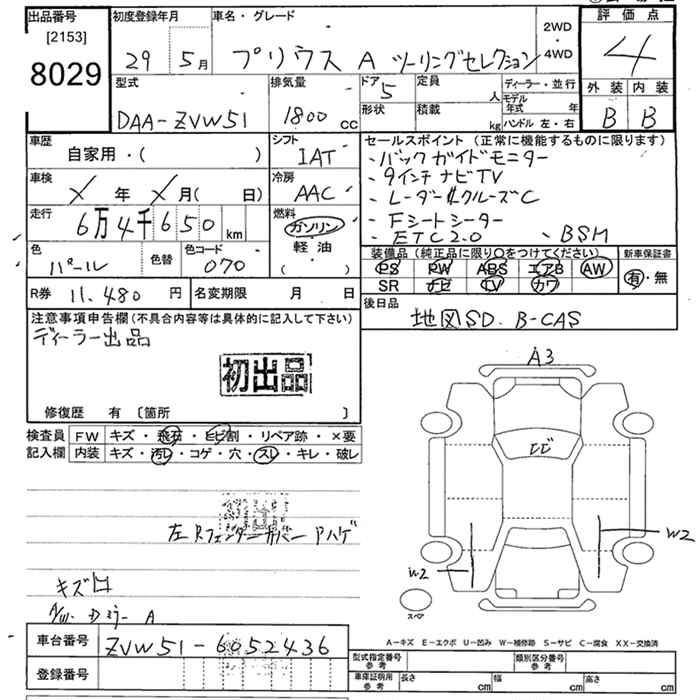 出品番号
[2153]
8029
初度登録年月
29 5月
車名・グレード
プリウス A ツーリングセレクション
2WD
・
4WD
評価点
4
外装 内装
B B
型式
DAA-ZVW51
排気量
1800 cc
ドア 5
形状
定員 人
積載 kg
ディーラー・並行
モデル年式 年
ハンドル 左・右
車歴
自家用・( )
シフト
IAT
車検
X 年 X 月( 日)
冷房
AAC
走行
6万4千650 km
燃料
ガソリン
軽油
( ・ )
色
パール
色替
色コード
070
R券 11.480 円
名変期限 月 日
セールスポイント (正常に機能するものに限ります)
・バックガイドモニター
・9インチナビTV
・レーダークルーズC
・Fシートヒーター
・ETC2.0 ・BSM
装備品 (純正品に限り○をつけてください)
PS PW ABS エアB AW
SR ナビ TV カワ
新車保証書
有・無
後日品
地図SD. B-CAS
注意事項申告欄(不具合内容等は具体的に記入して下さい)
ディーラー出品
初出品
修復歴 有 〔箇所 〕
検査員
記入欄
FW キズ・飛石・ヒビ割・リペア跡・×要
内装 キズ・汚レ・コゲ・穴・スレ・キレ・破レ
左Rフェンダーカバー Pハゲ
キズ
ミラー A
車台番号
ZVW51-6052436
登録番号
A3
ヒビ
W2
W2
スペア
A－キズ E－エクボ U－凹み W－補修跡 S－サビ C－腐食 XX－交換済
型式指定番号
参考
類別区分番号
参考
車庫証明用
参考
長さ cm
幅 cm
高さ cm